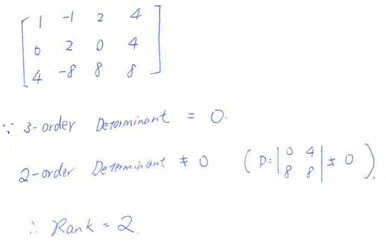 1 -1 2 4
0 2 0 4
4 -8 8 8
∵ 3-order Determinant = 0.
2-order Determinant ≠ 0 (D=|0 4 8 8| ≠ 0).
∴ Rank = 2.